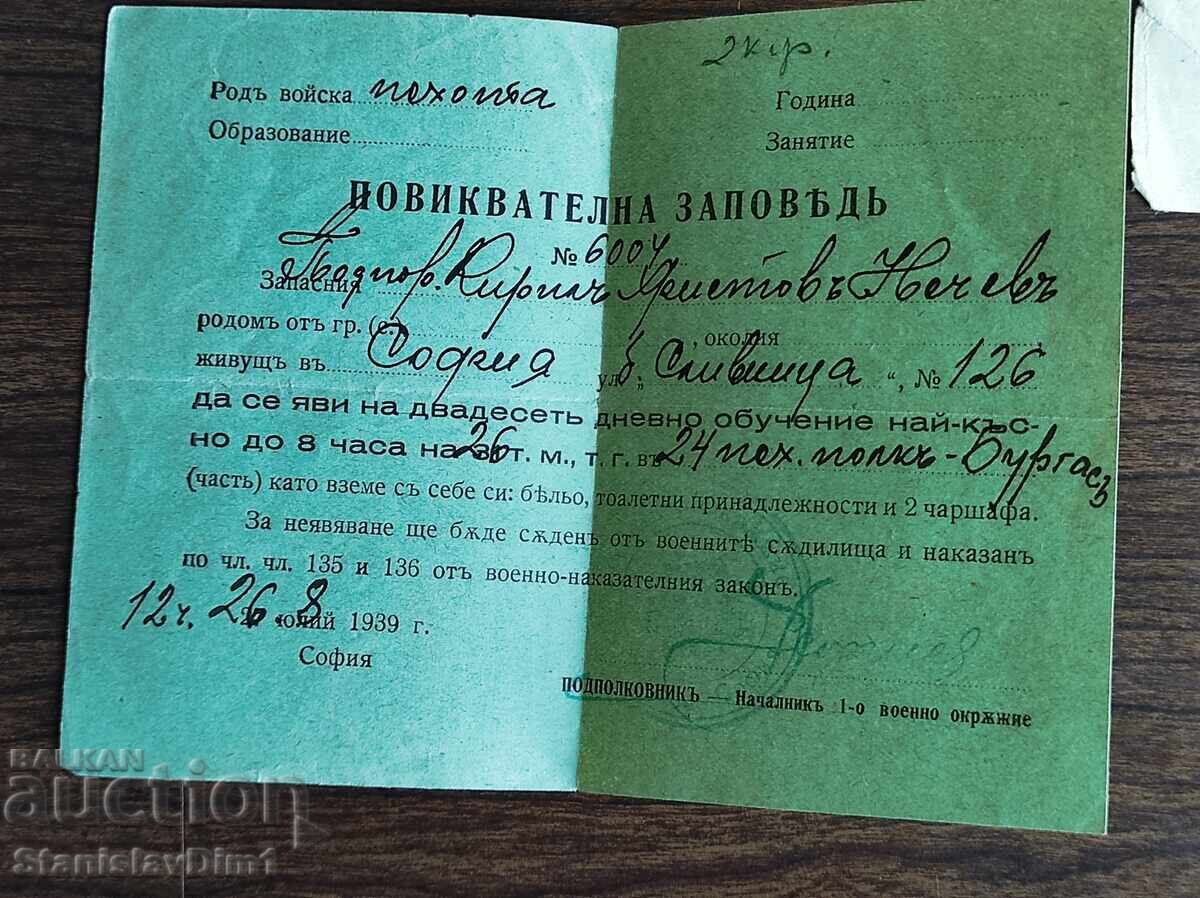 2 кр.
Родъ войска пехота
Година
Образование
Занятие
ПОВИКВАТЕЛНА ЗАПОВѢДЬ
№ 6004
Запасния Подпор. Кирилъ Христовъ Нечевъ
родомъ отъ гр. (с.) , околия
живущъ въ София ул. б. „Сливница“, № 126
да се яви на двадесеть дневно обучение най-къс-
но до 8 часа на 26 т. м., т. г. въ 24 пех. полкъ - Бургасъ
(часть) като вземе съ себе си: бѣльо, тоалетни принадлежности и 2 чаршафа.
За неявяване ще бѫде сѫденъ отъ военнитѣ сѫдилища и наказанъ
по чл. чл. 135 и 136 отъ военно-наказателния законъ.
12 ч. 26.8 юлий 1939 г.
София
ПОДПОЛКОВНИКЪ — Началник 1-о военно окрѫжие
BALKAN
auction
StanislavDim1